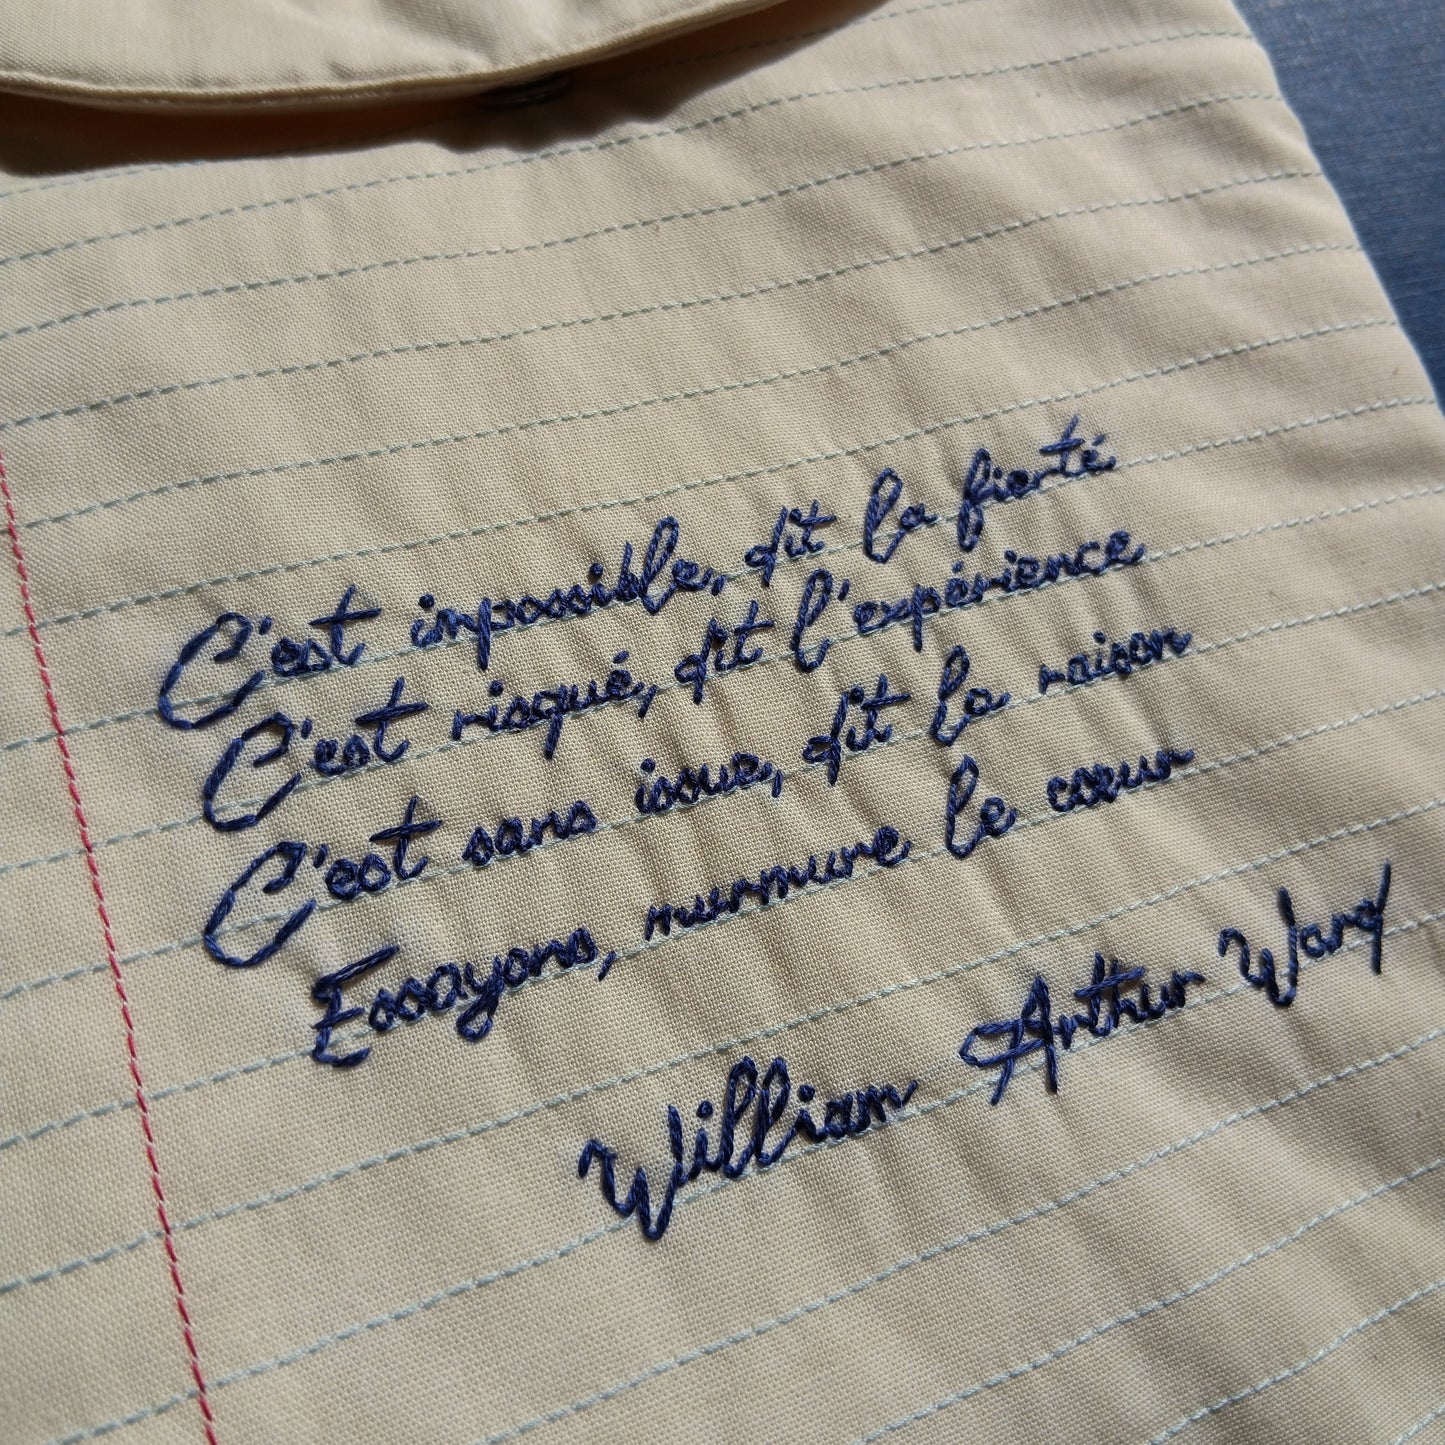 C'est impossible, dit la fierté
C'est risqué, dit l'expérience
C'est sans issue, dit la raison
Essayons, murmure le cœur
William Arthur Ward